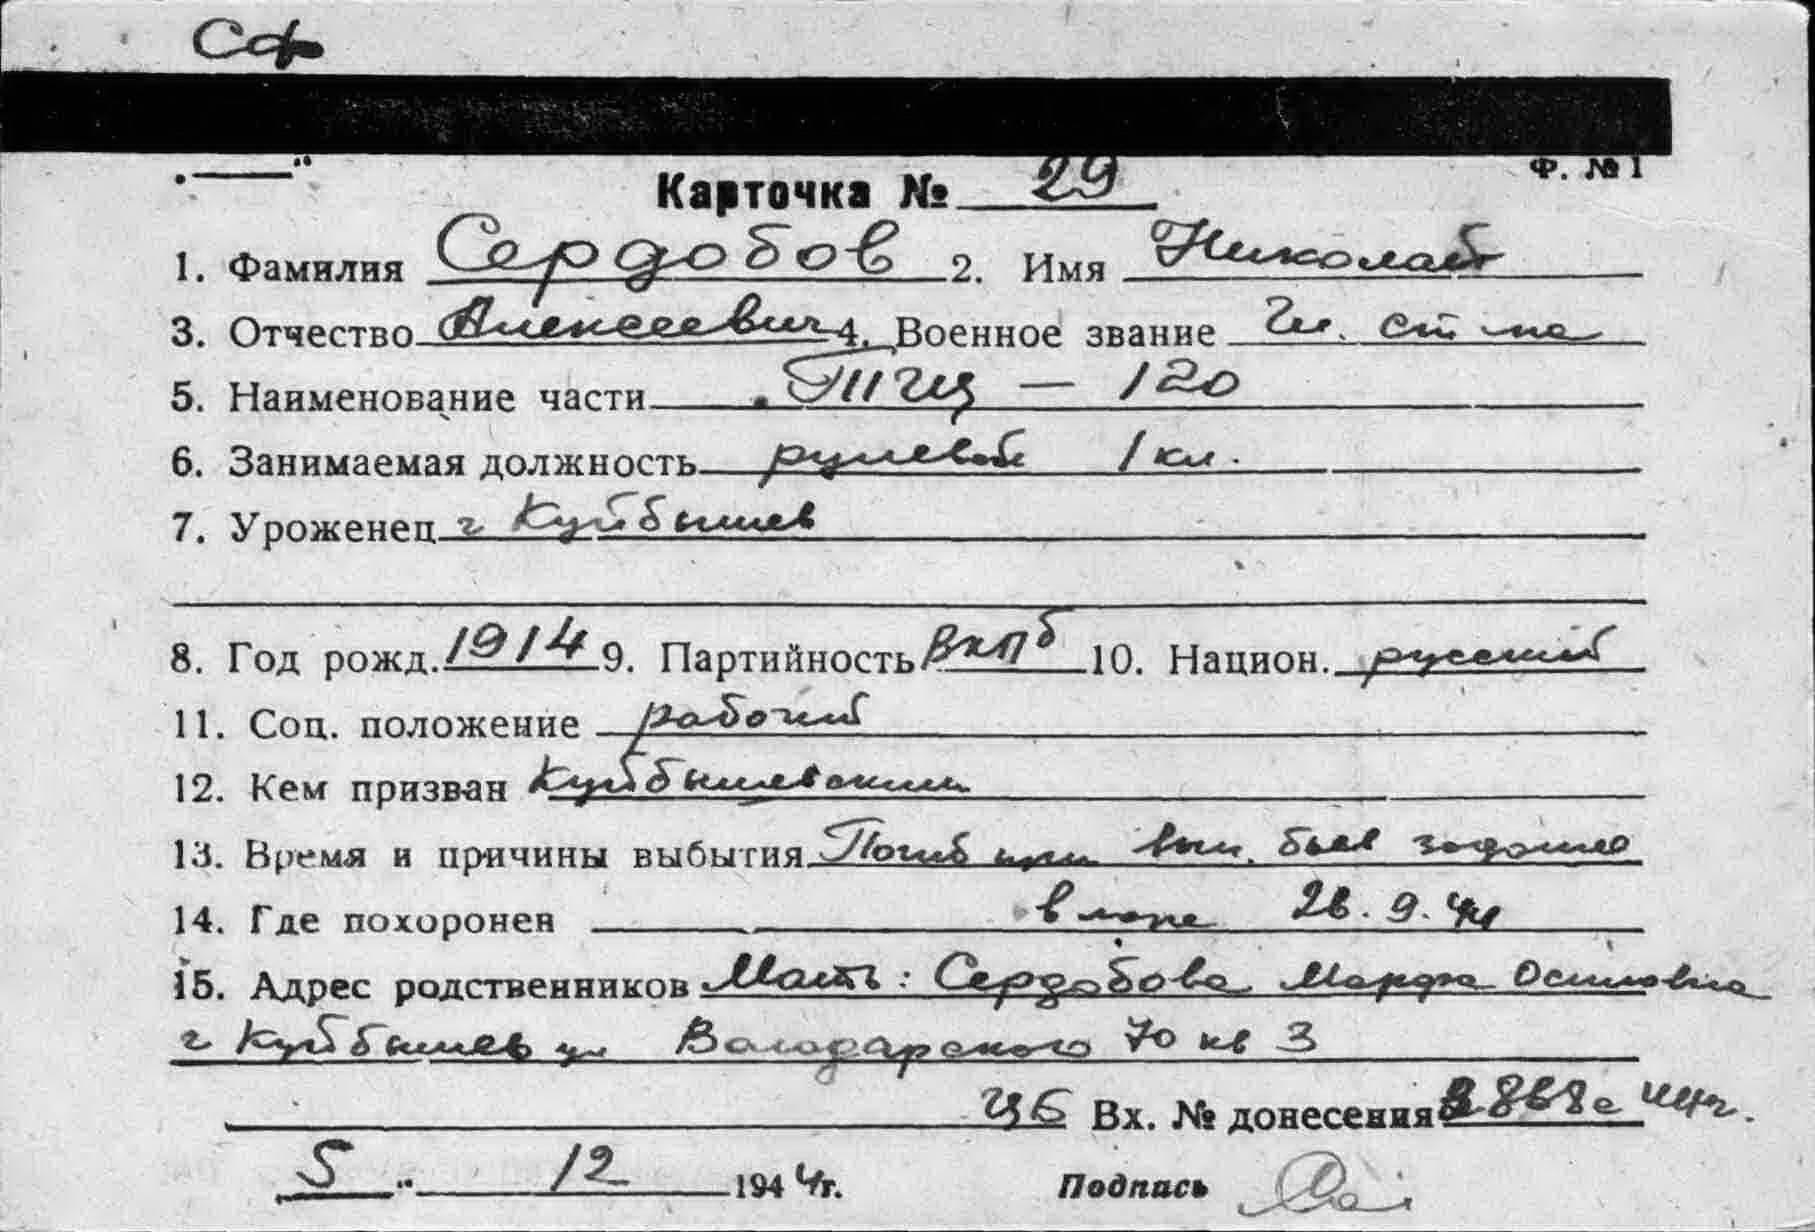 Сф
Ф. № 1
Карточка № 29
1. Фамилия Сердобов 2. Имя Николай
3. Отчество Алексеевич 4. Военное звание Гл. ст-на
5. Наименование части ТЩ — 120
6. Занимаемая должность рулевой 1 кл.
7. Уроженец г Куйбышев
8. Год рожд. 1914 9. Партийность ВКПб 10. Национ. русский
11. Соц. положение рабочий
12. Кем призван Куйбышевским
13. Время и причины выбытия Погиб при вып. боев задания
14. Где похоронен в море 9.44
15. Адрес родственников Мать: Сердобова Марфа Осиповна
г Куйбышев ул Володарского 70 кв 3
Вх. № донесения
5 " 12 1944г. Подпись